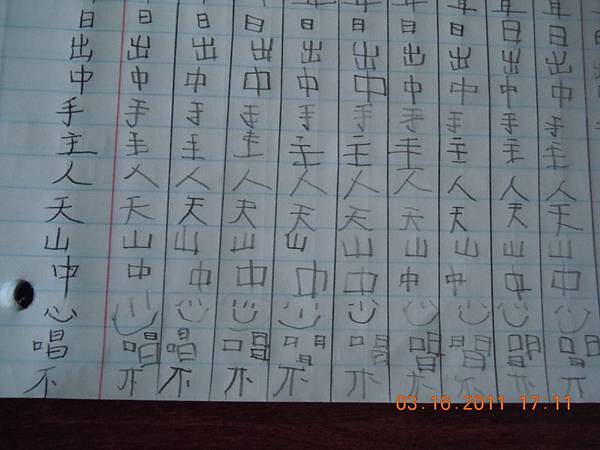 日 日 日 日 日 日 日 日 日 日
出 出 出 出 出 出 出 出 出 出
中 中 中 中 中 中 中 中 中 中
手 手 手 手 手 手 手 手 手 手
主 主 主 主 主 主 主 主 主 主
人 人 人 人 人 人 人 人 人 人
天 天 天 天 天 天 天 天 天 天
山 山 山 山 山 山 山 山 山 山
中 中 中 中 中 中 中 中 中 中
心 心 心 心 心 心 心 心 心 心
唱 唱 唱 唱 唱 唱 唱 唱 唱 唱
不 不 不 不 不 不 不 不 不 不
03.16.2011 17:11